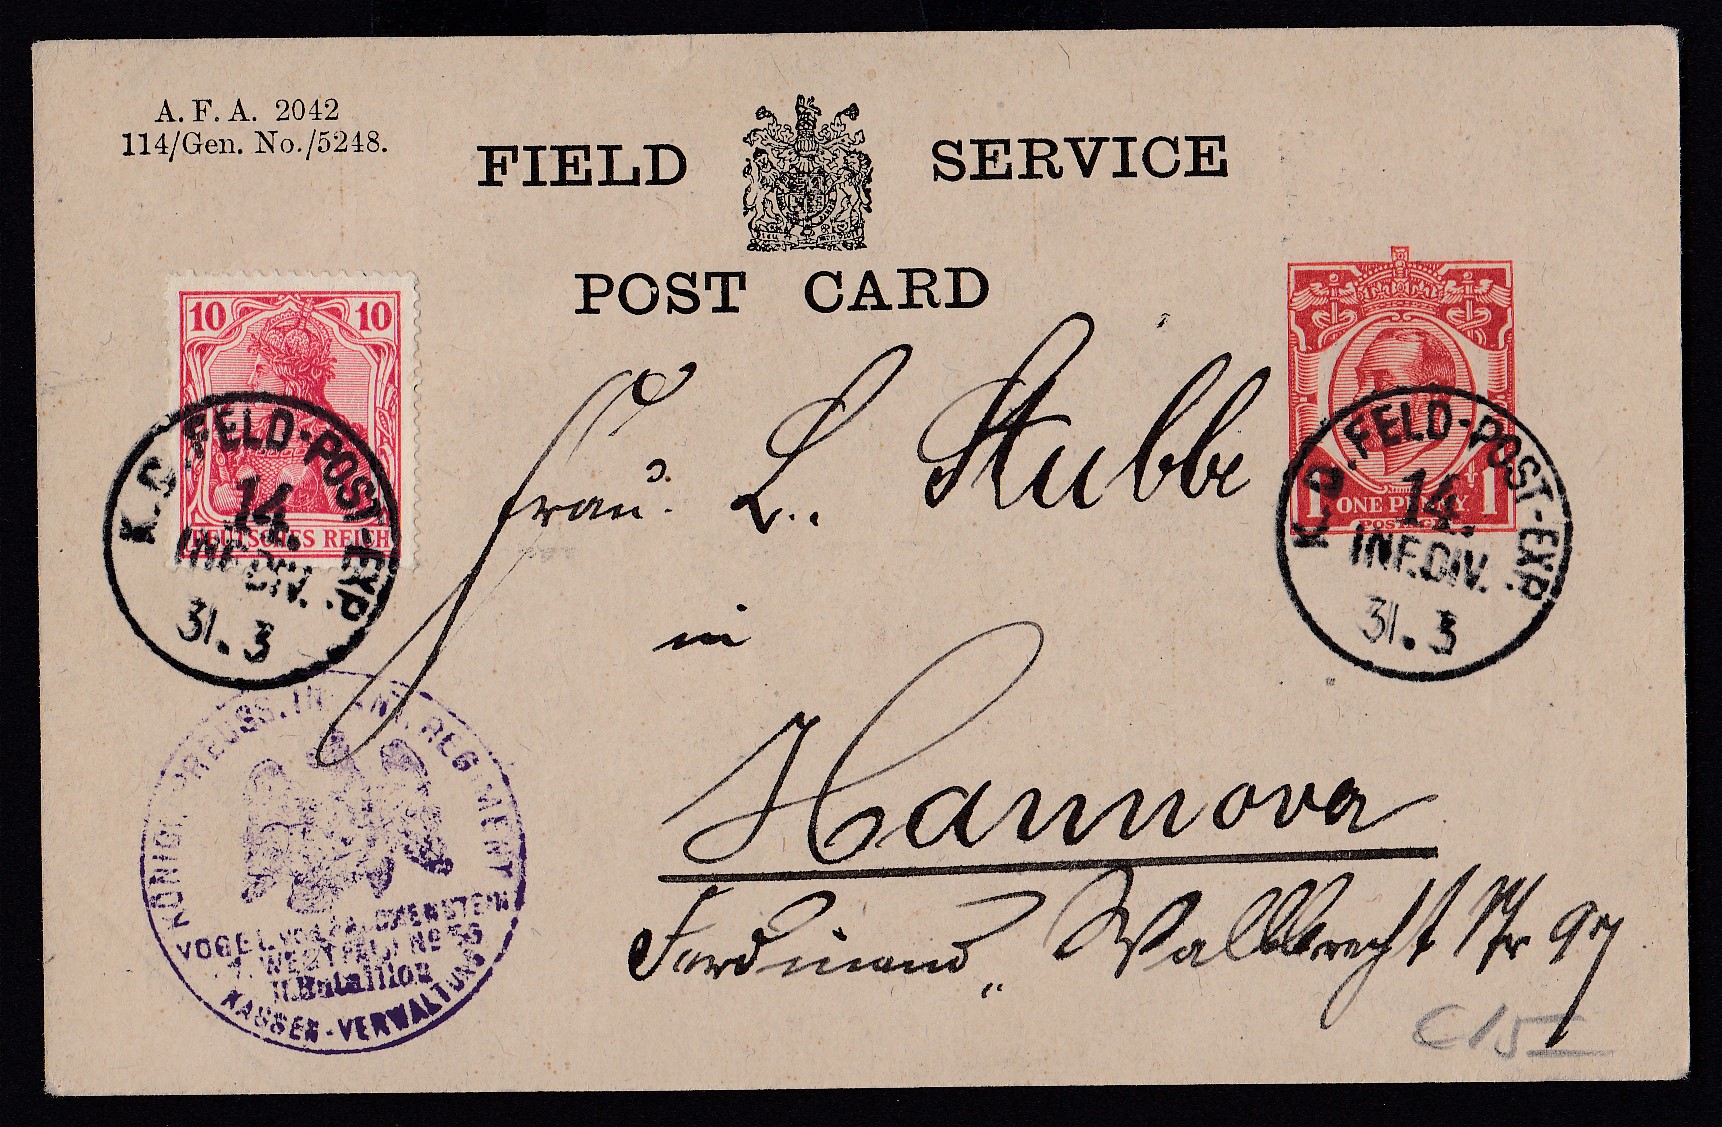 A. F. A. 2042
114/Gen. No./5248.
FIELD SERVICE
POST CARD
10 10
DEUTSCHES REICH
K.D. FELD-POST-EXP.
14.
INF.DIV.
31.3
1 ONE PENNY 1
POSTAGE
K.D. FELD-POST-EXP.
14.
INF.DIV.
31.3
Frau L. Stubbe
in
Hannover
Ferdinand Wallbrecht Nr 97
KÖNIGL. PREUSS. INFANT. REGIMENT
VOGEL VON FALCKENSTEIN
7. WESTFÄL. No 56
II. Bataillon
KASSEN-VERWALTUNG
€15